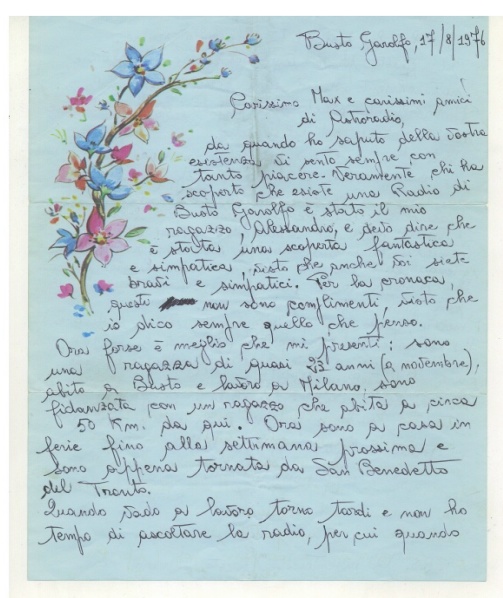 Busto Garolfo, 17/8/1976
Carissimo Max e carissimi amici
di Astroradio,
da quando ho saputo della vostra
esistenza vi sento sempre con
tanto piacere. Veramente chi ha
scoperto che esiste una Radio di
Busto Garolfo è stato il mio
ragazzo, Alessandro, e devo dire che
è stata una scoperta fantastica
e simpatica, visto che anche voi siete
bravi e simpatici. Per la cronaca,
questi non sono complimenti, visto che
io dico sempre quello che penso.
Ora forse è meglio che mi presenti: sono
una ragazza di quasi 23 anni (a novembre),
abito a Busto e lavoro a Milano, sono
fidanzata con un ragazzo che abita a circa
50 Km. da qui. Ora sono a casa in
ferie fino alla settimana prossima e
sono appena tornata da San Benedetto
del Tronto.
Quando vado a lavoro torno tardi e non ho
tempo di ascoltare la radio, per cui quando